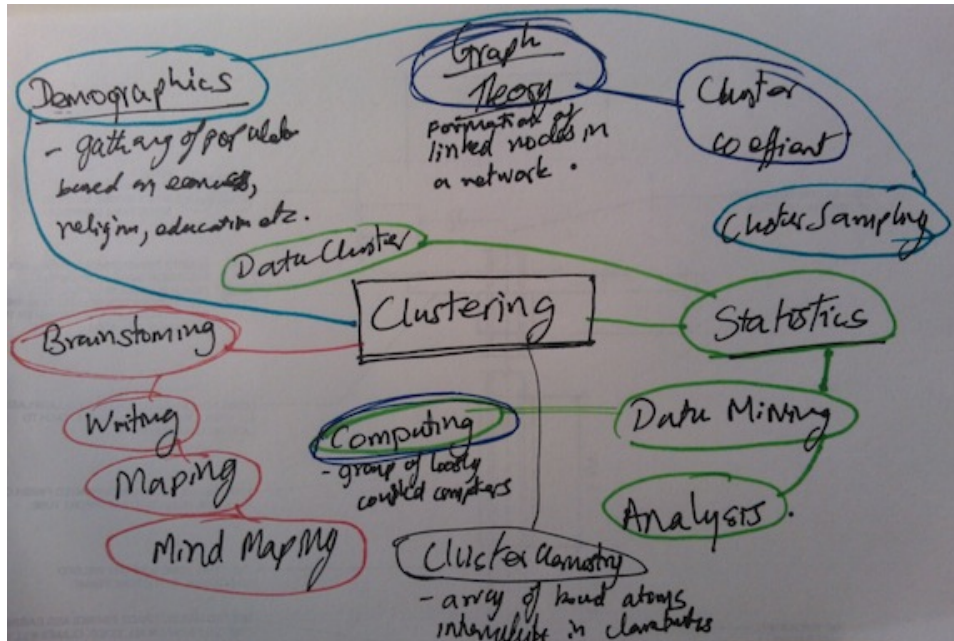 Demographics
- gathering of
based on
religion, education etc.
Graph
Theory
Formation of
linked nodes in
a network.
Cluster
coeffient
Cluster Sampling
Data Cluster
Clustering
Statistics
Brainstoming
Writing
Maping
Mind Maping
Computing
- group of loosly
coupled computers
Data Mining
Analysis.
Cluster Chemistry
- array of bound atoms
in